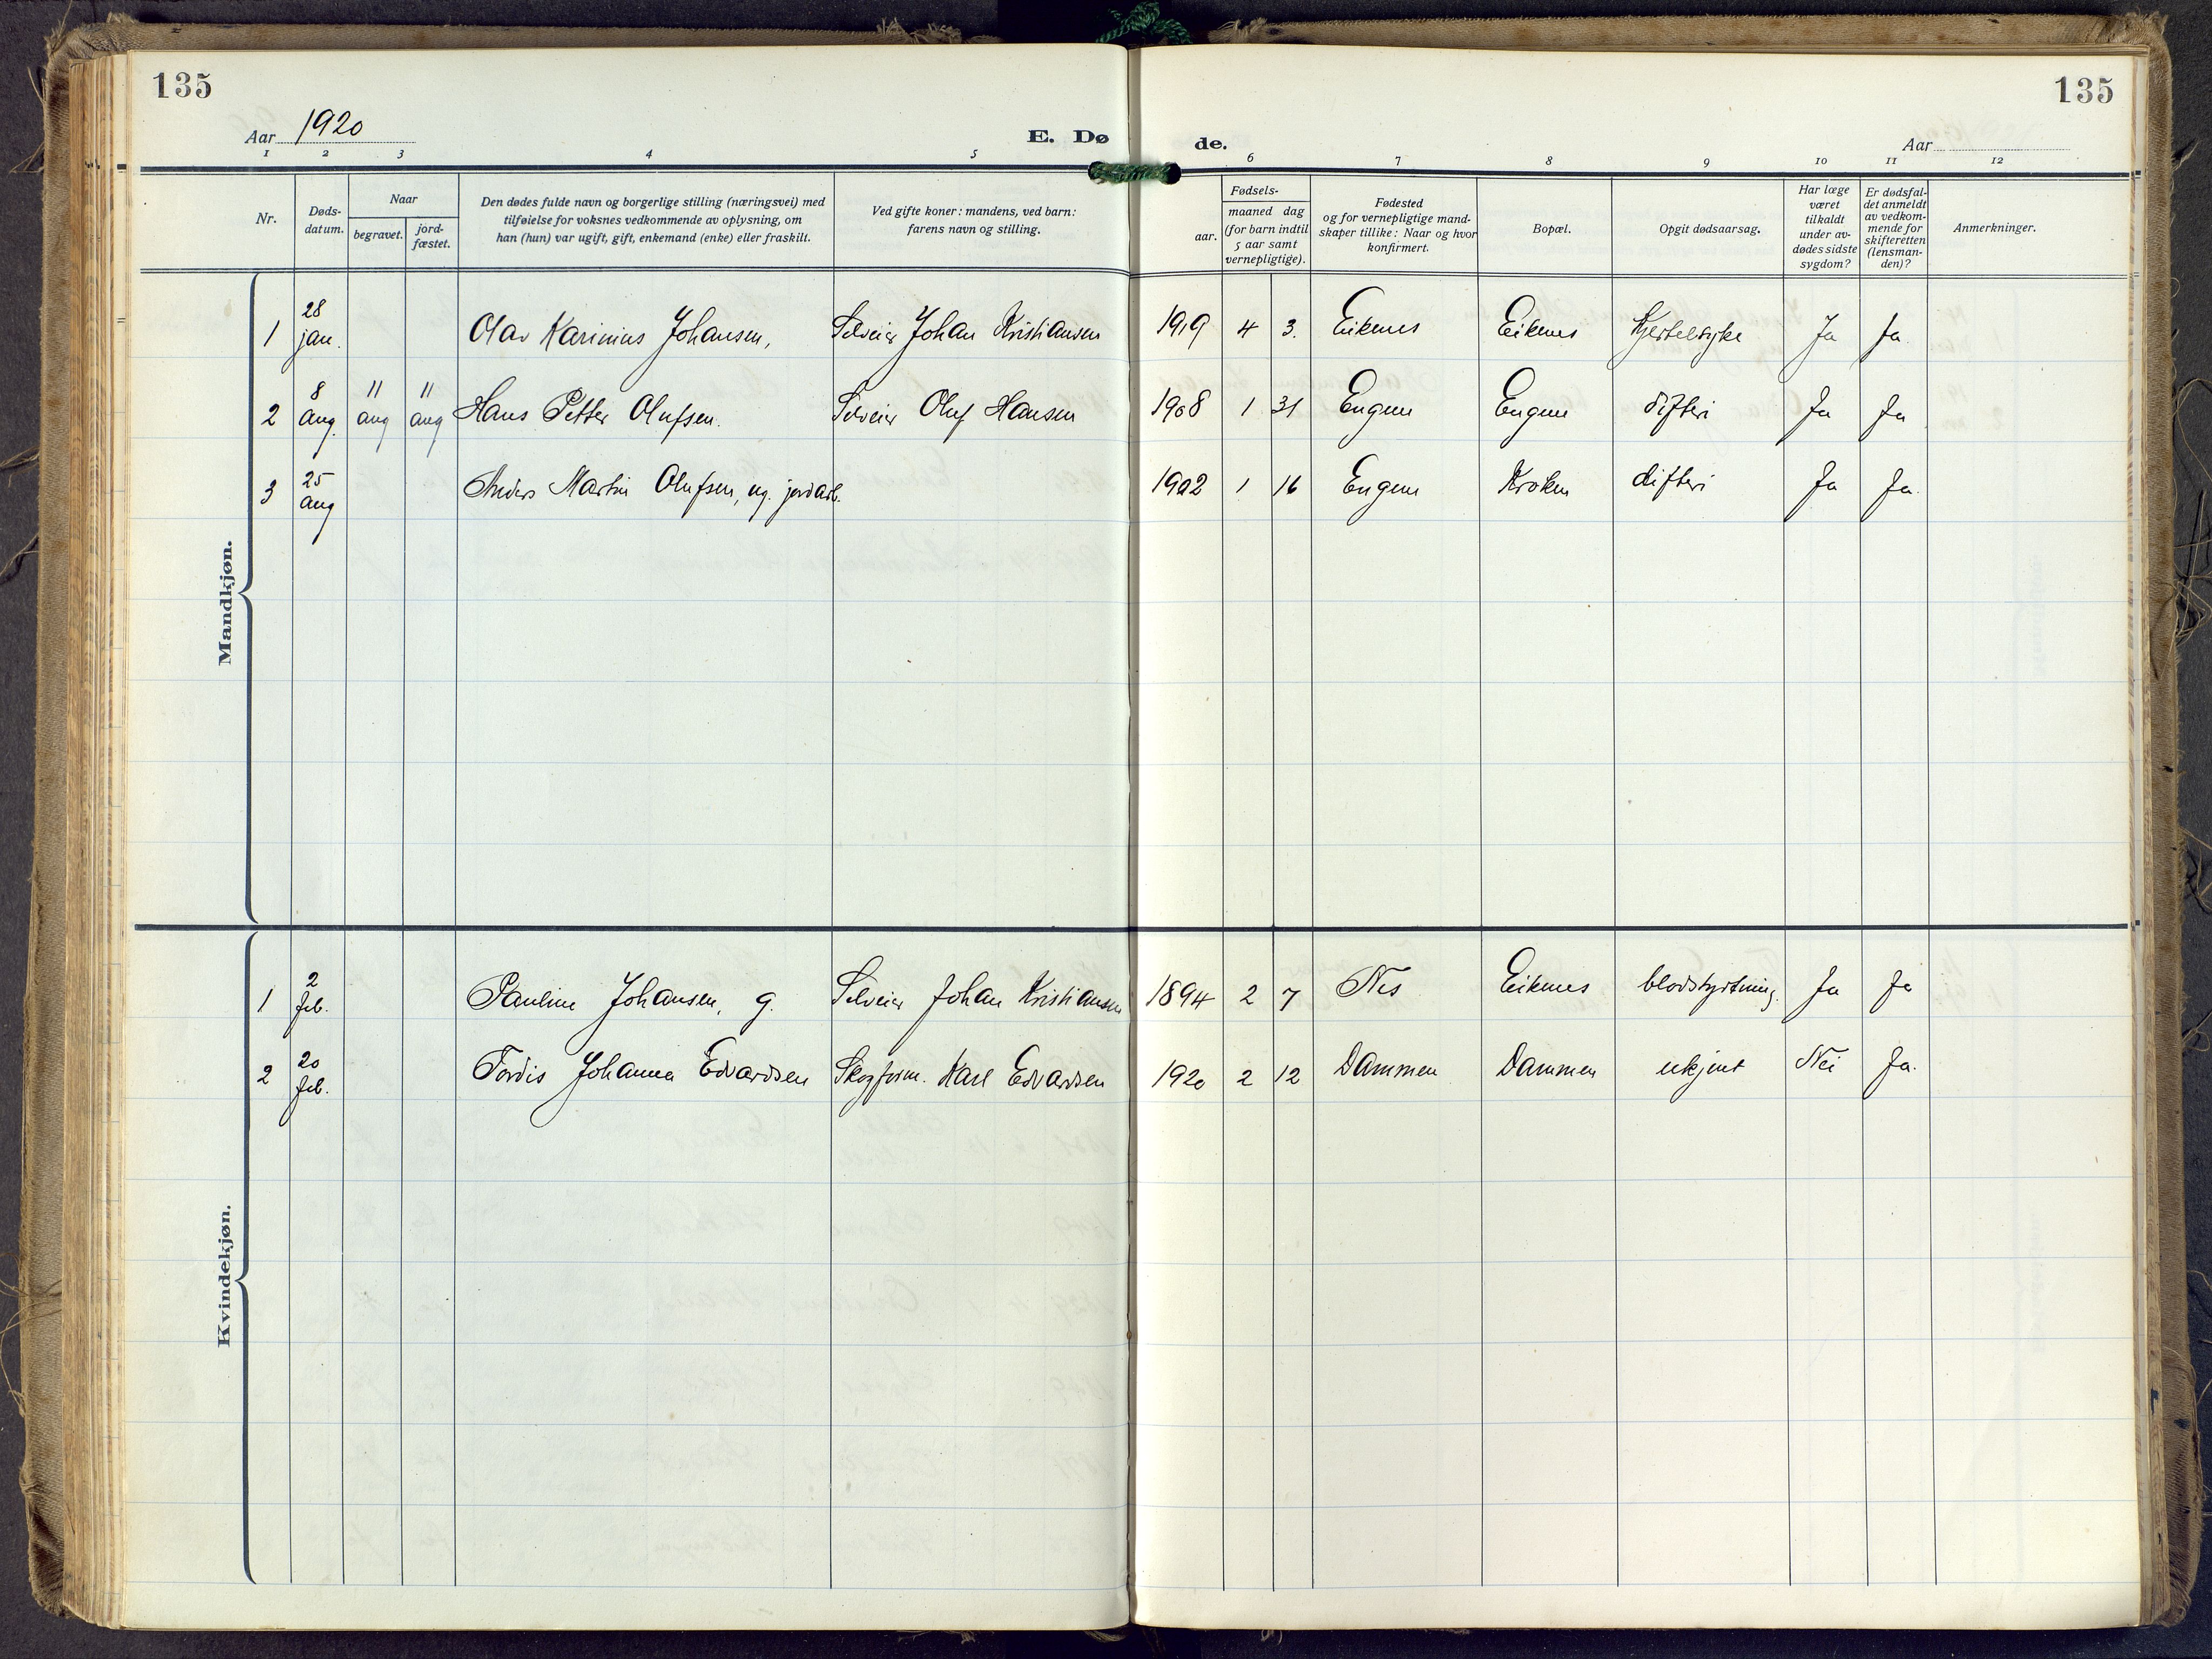 135
135
Aar 1920
E. Dø
de.
Aar
1 2 3 4 5 6 7 8 9 10 11 12
Nr.
Døds-
datum.
Naar
begravet.
jord-
fæstet.
Den dødes fulde navn og borgerlige stilling (næringsvei) med
tilføielse for voksnes vedkommende av oplysning, om
han (hun) var ugift, gift, enkemand (enke) eller fraskilt.
Ved gifte koner: mandens, ved barn:
farens navn og stilling.
Fødsels-
aar.
maaned dag
(for barn indtil
5 aar samt
vernepligtige).
Fødested
og for vernepligtige mand-
skaper tillike: Naar og hvor
konfirmert.
Bopæl.
Opgit dødsaarsag.
Har læge
været
tilkaldt
under av-
dødes sidste
sygdom?
Er dødsfal-
det anmeldt
av vedkom-
mende for
skifteretten
(lensman-
den)?
Anmerkninger.
Mandkjøn.
1 28 jan. Olav Karinius Johansen, Selveier Johan Kristiansen 1919 4 3. Eikenes Eikenes Kjertelsyke Ja Ja.
2 8 aug. 11 aug 11 aug Hans Petter Olufsen. Selveier Oluf Hansen 1908 1 31 Engene Engene difteri Ja Ja
3 25 aug Anders Martin Olufsen, ug. jordarb. 1902 1 16 Engene Kroken difteri Ja Ja.
Kvindekjøn.
1 2 feb. Pauline Johansen, g. Selveier Johan Kristiansen 1894 2 7 Nes Eikenes blodstyrtning. Ja Ja
2 20 feb. Tordis Johanna Edvardsen Skogform. Karl Edvardsen 1920 2 12 Dammen Dammen ukjent Nei Ja.